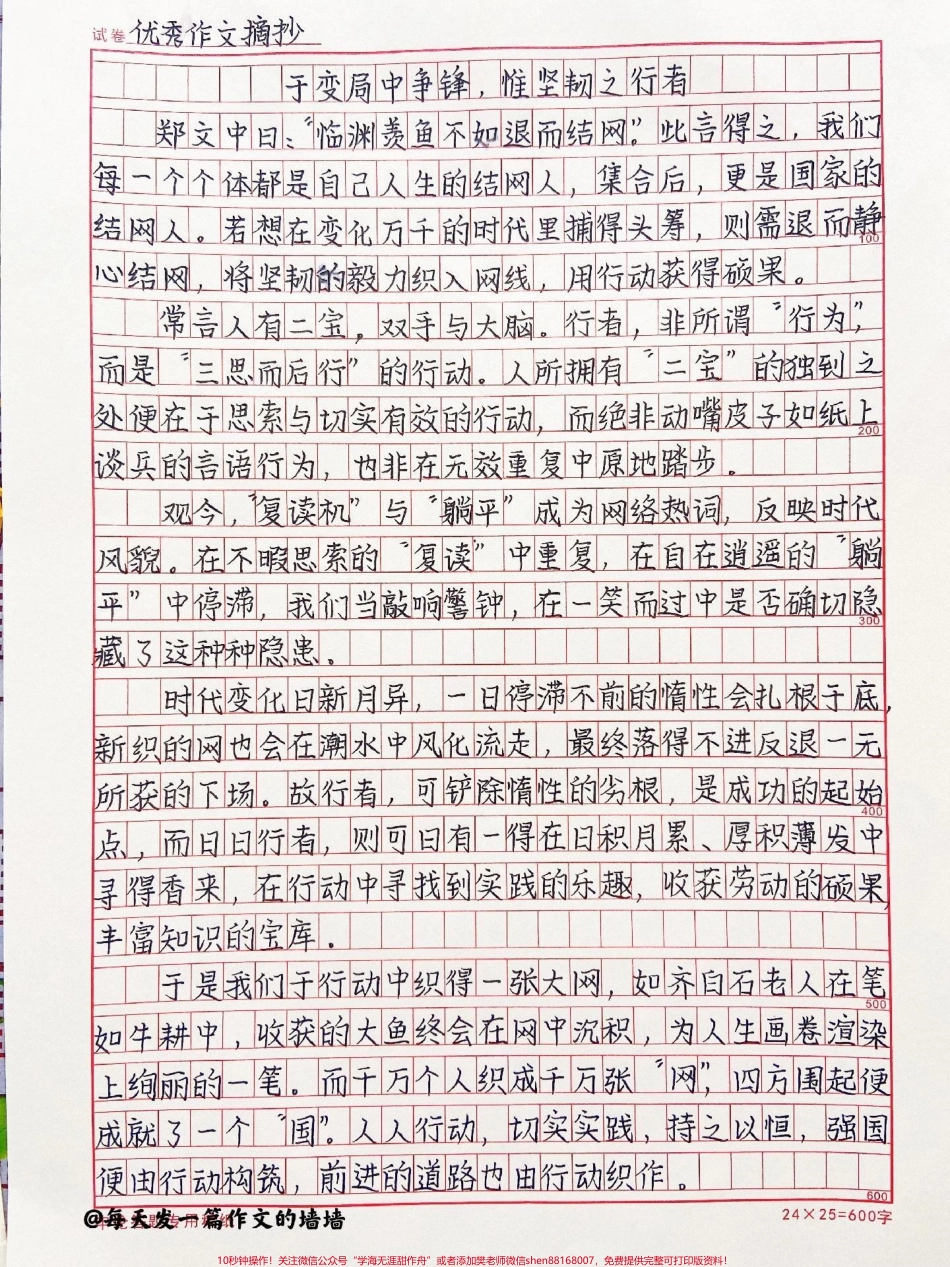 试卷 优秀作文摘抄
于变局中争锋，惟坚韧之行者
郑文中曰：“临渊羡鱼不如退而结网。”此言得之，我们
每一个个体都是自己人生的结网人，集合后，更是国家的
结网人。若想在变化万千的时代里捕得头筹，则需退而静
100
心结网，将坚韧的毅力织入网线，用行动获得硕果。
常言人有二宝，双手与大脑。行者，非所谓“行为”，
而是“三思而后行”的行动。人所拥有“二宝”的独到之
处便在于思索与切实有效的行动，而绝非动嘴皮子如纸上
200
谈兵的言语行为，也非在无效重复中原地踏步。
观今，“复读机”与“躺平”成为网络热词，反映时代
风貌。在不暇思索的“复读”中重复，在自在逍遥的“躺
平”中停滞，我们当敲响警钟，在一笑而过中是否确切隐
300
藏了这种种隐患。
时代变化日新月异，一日停滞不前的惰性会扎根于底，
新织的网也会在潮水中风化流走，最终落得不进反退一无
所获的下场。故行者，可铲除惰性的劣根，是成功的起始
400
点，而日日行者，则可日有一得在日积月累、厚积薄发中
寻得香来，在行动中寻找到实践的乐趣，收获劳动的硕果，
丰富知识的宝库。
于是我们于行动中织得一张大网，如齐白石老人在笔
500
如牛耕中，收获的大鱼终会在网中沉积，为人生画卷渲染
上绚丽的一笔。而千万个人织成千万张“网”，四方围起便
成就了一个“国”。人人行动，切实实践，持之以恒，强国
便由行动构筑，前进的道路也由行动织作。
600
@每天发一篇作文的墙墙
24×25=600字
10秒钟操作！关注微信公众号“学海无涯甜作舟”或者添加樊老师微信shen88168007，免费提供完整可打印版资料！